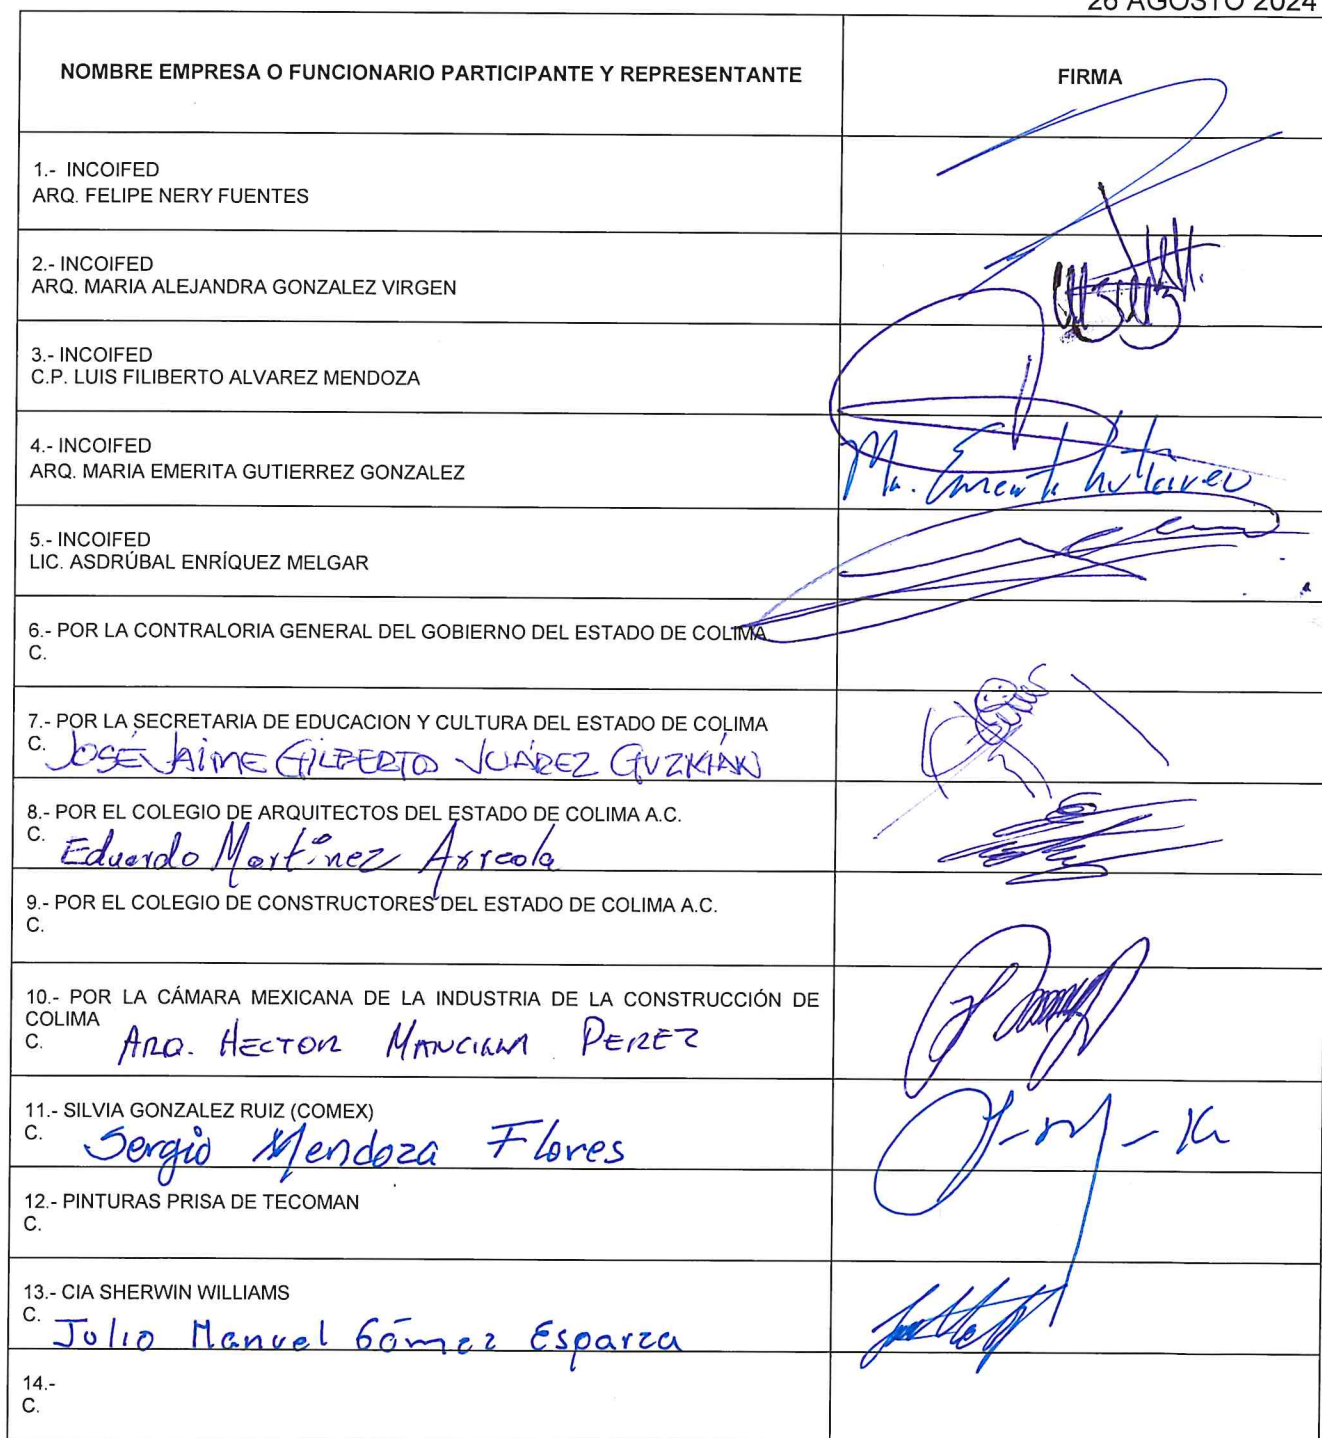 26 AGOSTO 2024
NOMBRE EMPRESA O FUNCIONARIO PARTICIPANTE Y REPRESENTANTE
FIRMA
1.- INCOIFED
ARQ. FELIPE NERY FUENTES
2.- INCOIFED
ARQ. MARIA ALEJANDRA GONZALEZ VIRGEN
3.- INCOIFED
C.P. LUIS FILIBERTO ALVAREZ MENDOZA
4.- INCOIFED
ARQ. MARIA EMERITA GUTIERREZ GONZALEZ
Ma. Emerita Gutierrez
5.- INCOIFED
LIC. ASDRÚBAL ENRÍQUEZ MELGAR
6.- POR LA CONTRALORIA GENERAL DEL GOBIERNO DEL ESTADO DE COLIMA
C.
7.- POR LA SECRETARIA DE EDUCACION Y CULTURA DEL ESTADO DE COLIMA
C. JOSÉ JAIME GILBERTO JUÁREZ GUZMÁN
8.- POR EL COLEGIO DE ARQUITECTOS DEL ESTADO DE COLIMA A.C.
C. Eduardo Martínez Arreola
9.- POR EL COLEGIO DE CONSTRUCTORES DEL ESTADO DE COLIMA A.C.
C.
10.- POR LA CÁMARA MEXICANA DE LA INDUSTRIA DE LA CONSTRUCCIÓN DE
COLIMA
C. ARQ. HECTOR MANCILLA PEREZ
11.- SILVIA GONZALEZ RUIZ (COMEX)
C. Sergio Mendoza Flores
12.- PINTURAS PRISA DE TECOMAN
C.
13.- CIA SHERWIN WILLIAMS
C. Julio Manuel Gómez Esparza
14.-
C.